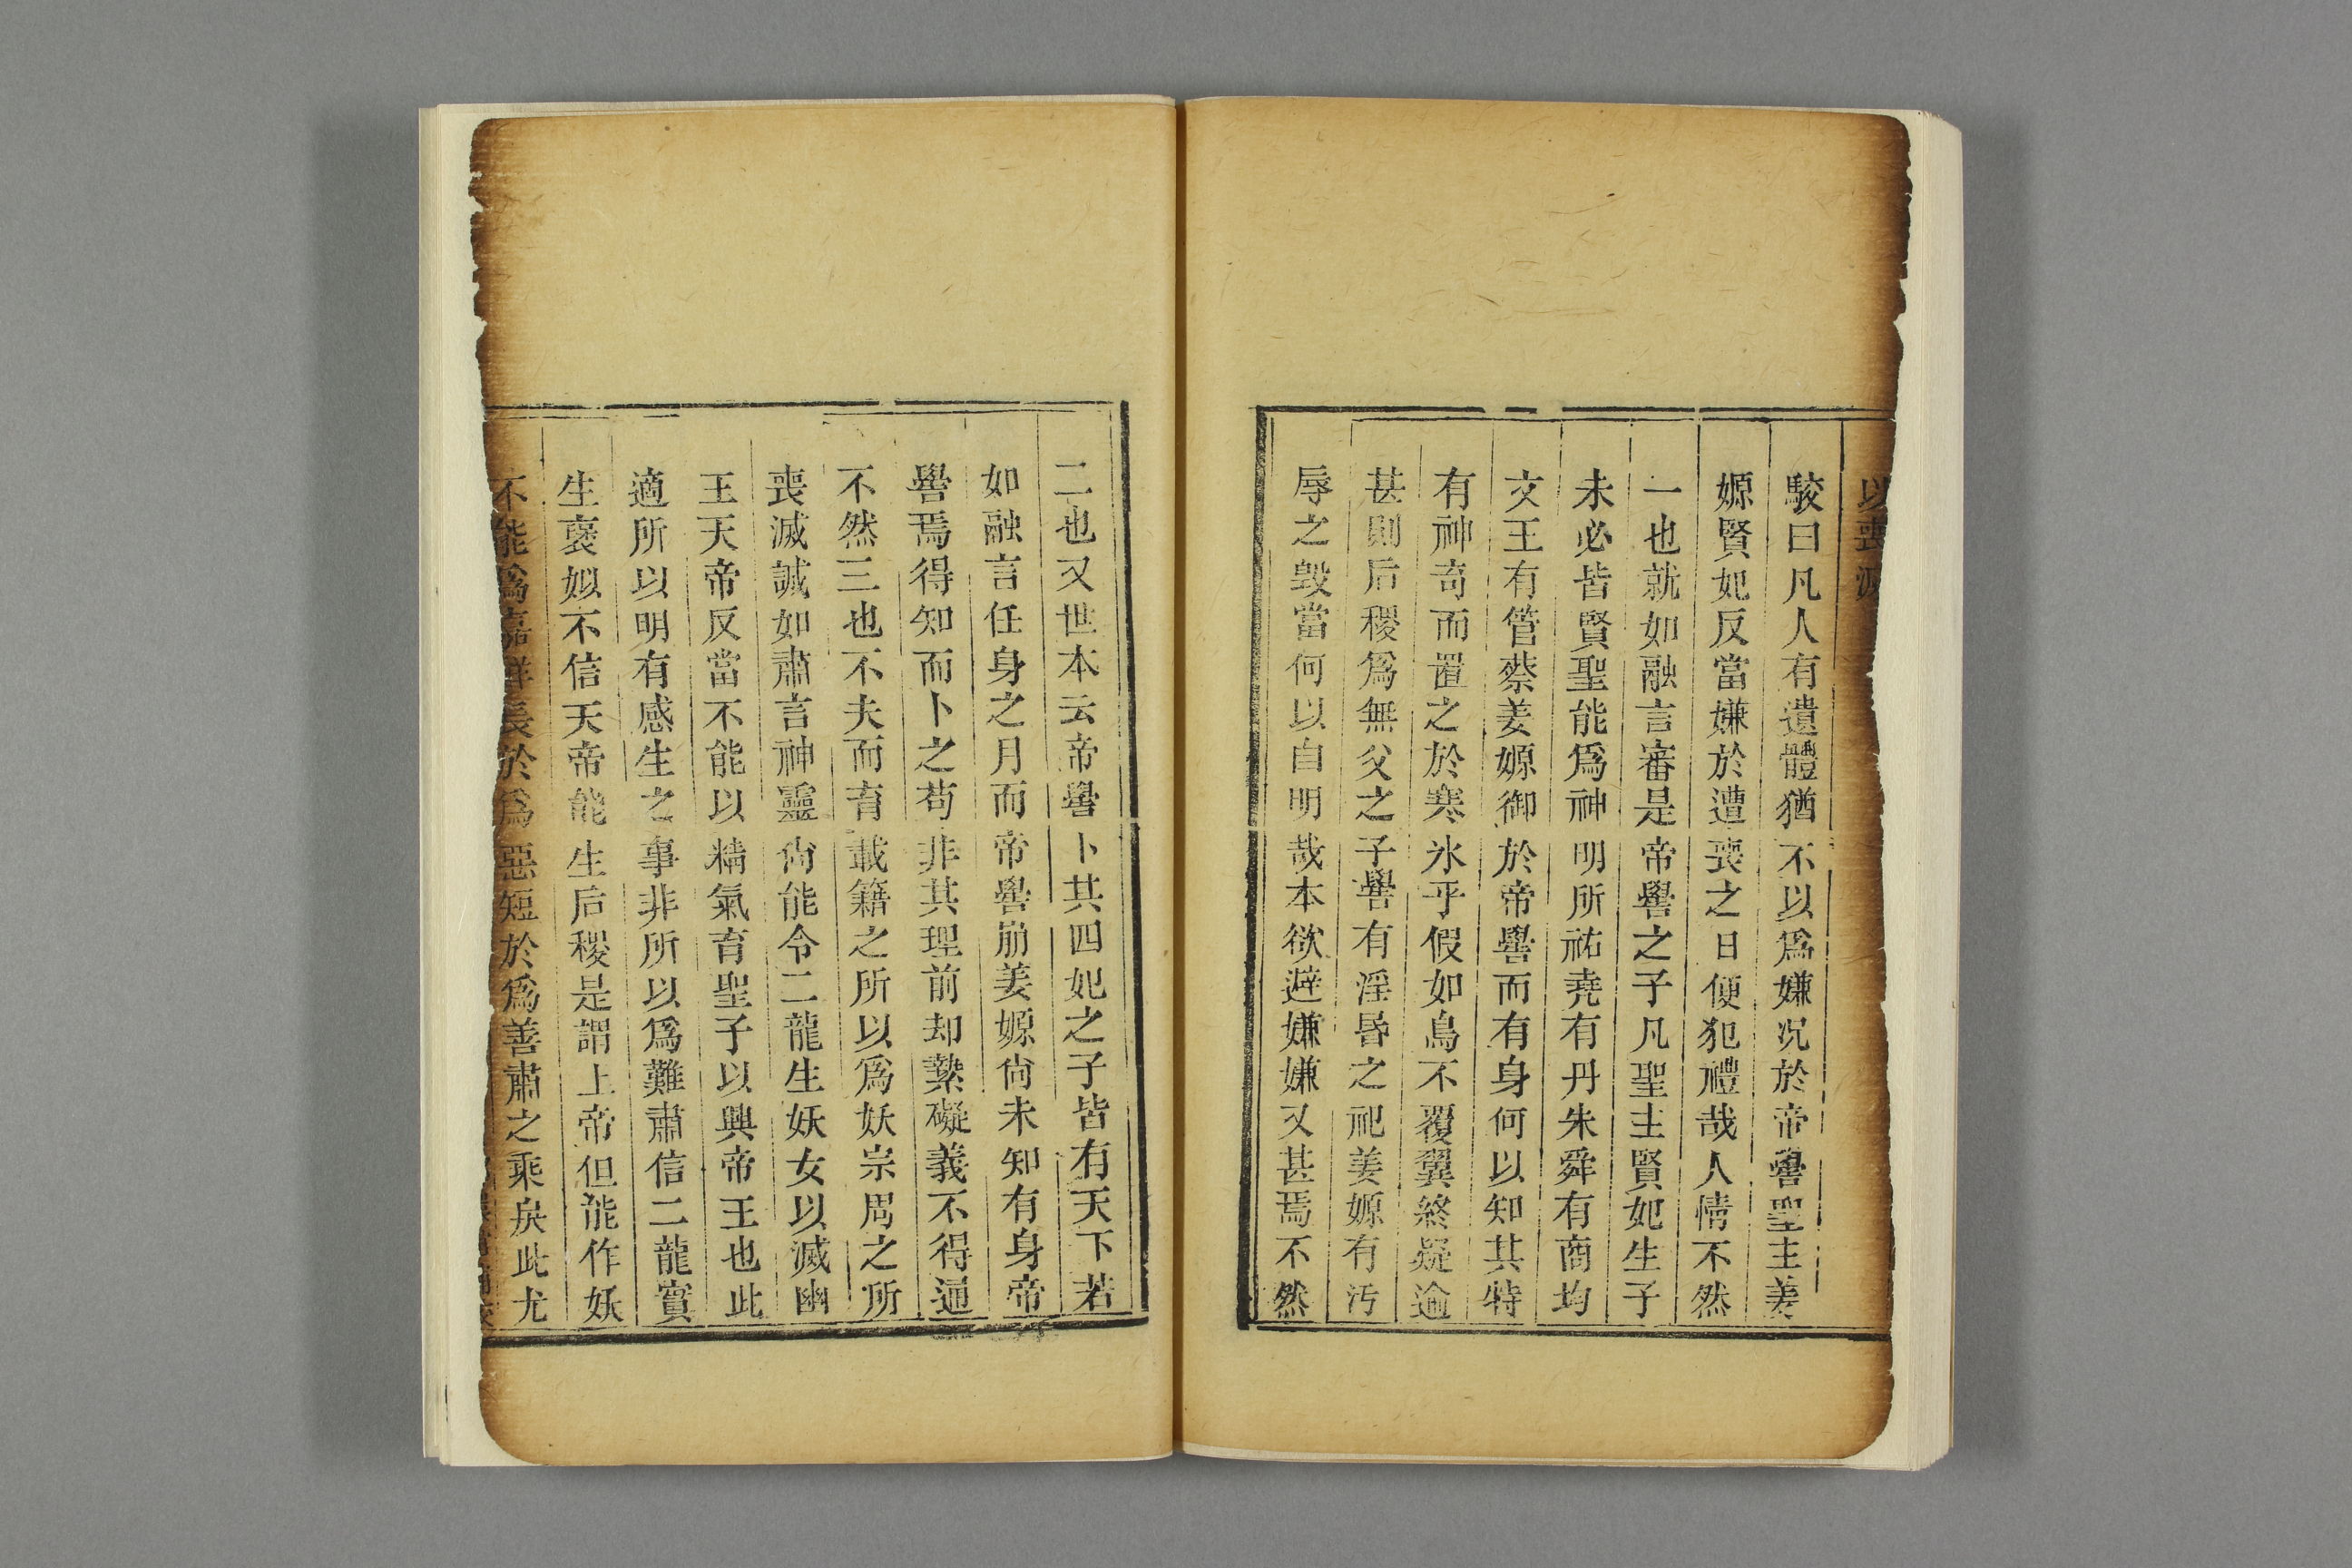 以喪滅
駮曰凡人有遺體猶不以爲嫌况於帝嚳聖主姜
嫄賢妃反當嫌於遭喪之日便犯禮哉人情不然
一也就如融言審是帝嚳之子凡聖主賢妃生子
未必皆賢聖能爲神明所祐堯有丹朱舜有商均
文王有管蔡姜嫄御於帝嚳而有身何以知其特
有神奇而置之於寒氷乎假如鳥不覆翼終疑逾
甚則后稷爲無父之子嚳有淫昬之祀姜嫄有污
辱之毀當何以自明哉本欲避嫌嫌又甚焉不然
二也又世本云帝嚳卜其四妃之子皆有天下若
如融言任身之月而帝嚳崩姜嫄尙未知有身帝
嚳焉得知而卜之苟非其理前却縶礙義不得通
不然三也不夫而育載籍之所以爲妖宗周之所
喪滅誠如肅言神靈尙能令二龍生妖女以滅幽
王天帝反當不能以精氣育聖子以興帝王也此
適所以明有感生之事非所以爲難肅信二龍實
生褒姒不信天帝能生后稷是謂上帝但能作妖
不能爲嘉祥長於爲惡短於爲善肅之乘戾此尤